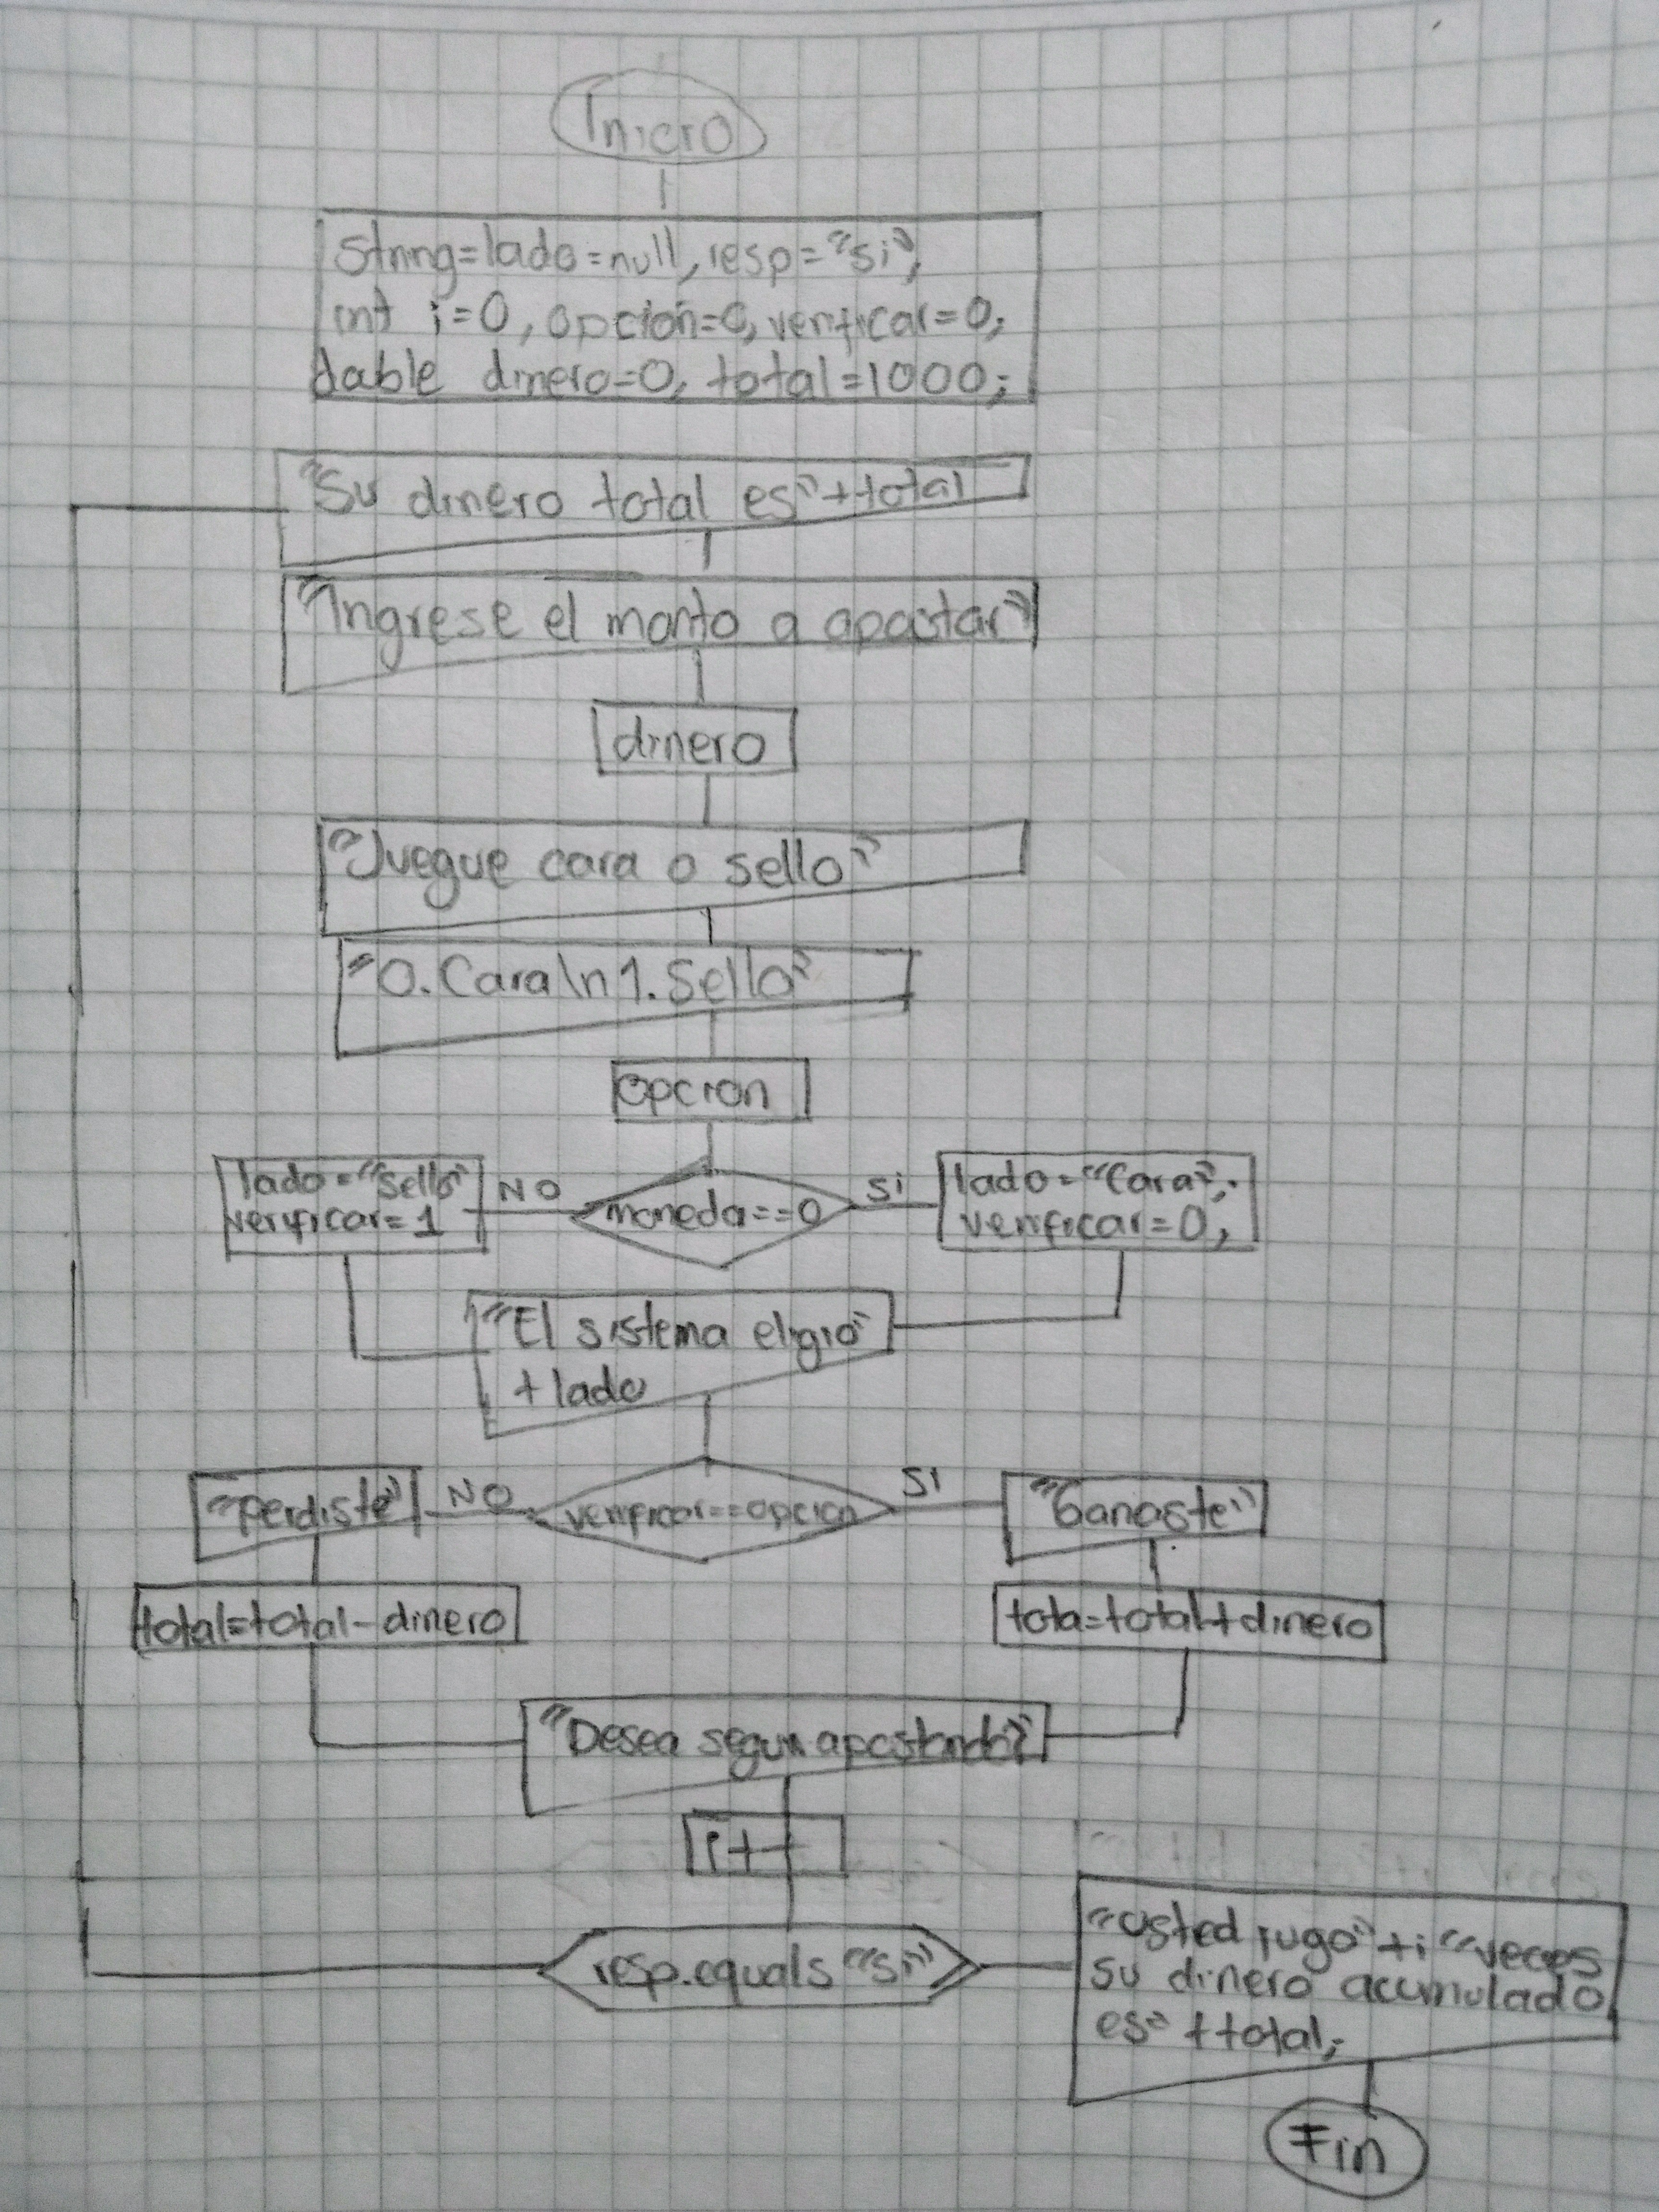 Inicio
String=lado=null, resp="si",
int i=0, opcion=0, verificar=0;
dable dinero=0, total=1000;
"Su dinero total es"+total
"Ingrese el monto a apostar"
dinero
"Juegue cara o sello"
"0.Cara\n1.Sello"
opcion
lado="sello"
verificar=1
NO
moneda==0
Si
lado="Cara";
verificar=0,
"El sistema eligio"
+lado
"Perdiste"
NO
verificar==opcion
SI
"Ganaste"
total=total-dinero
tota=total+dinero
"Desea seguir apostando?"
i++
resp.equals "si"
"usted jugo"+i "veces
su dinero acumulado
es" +total;
Fin